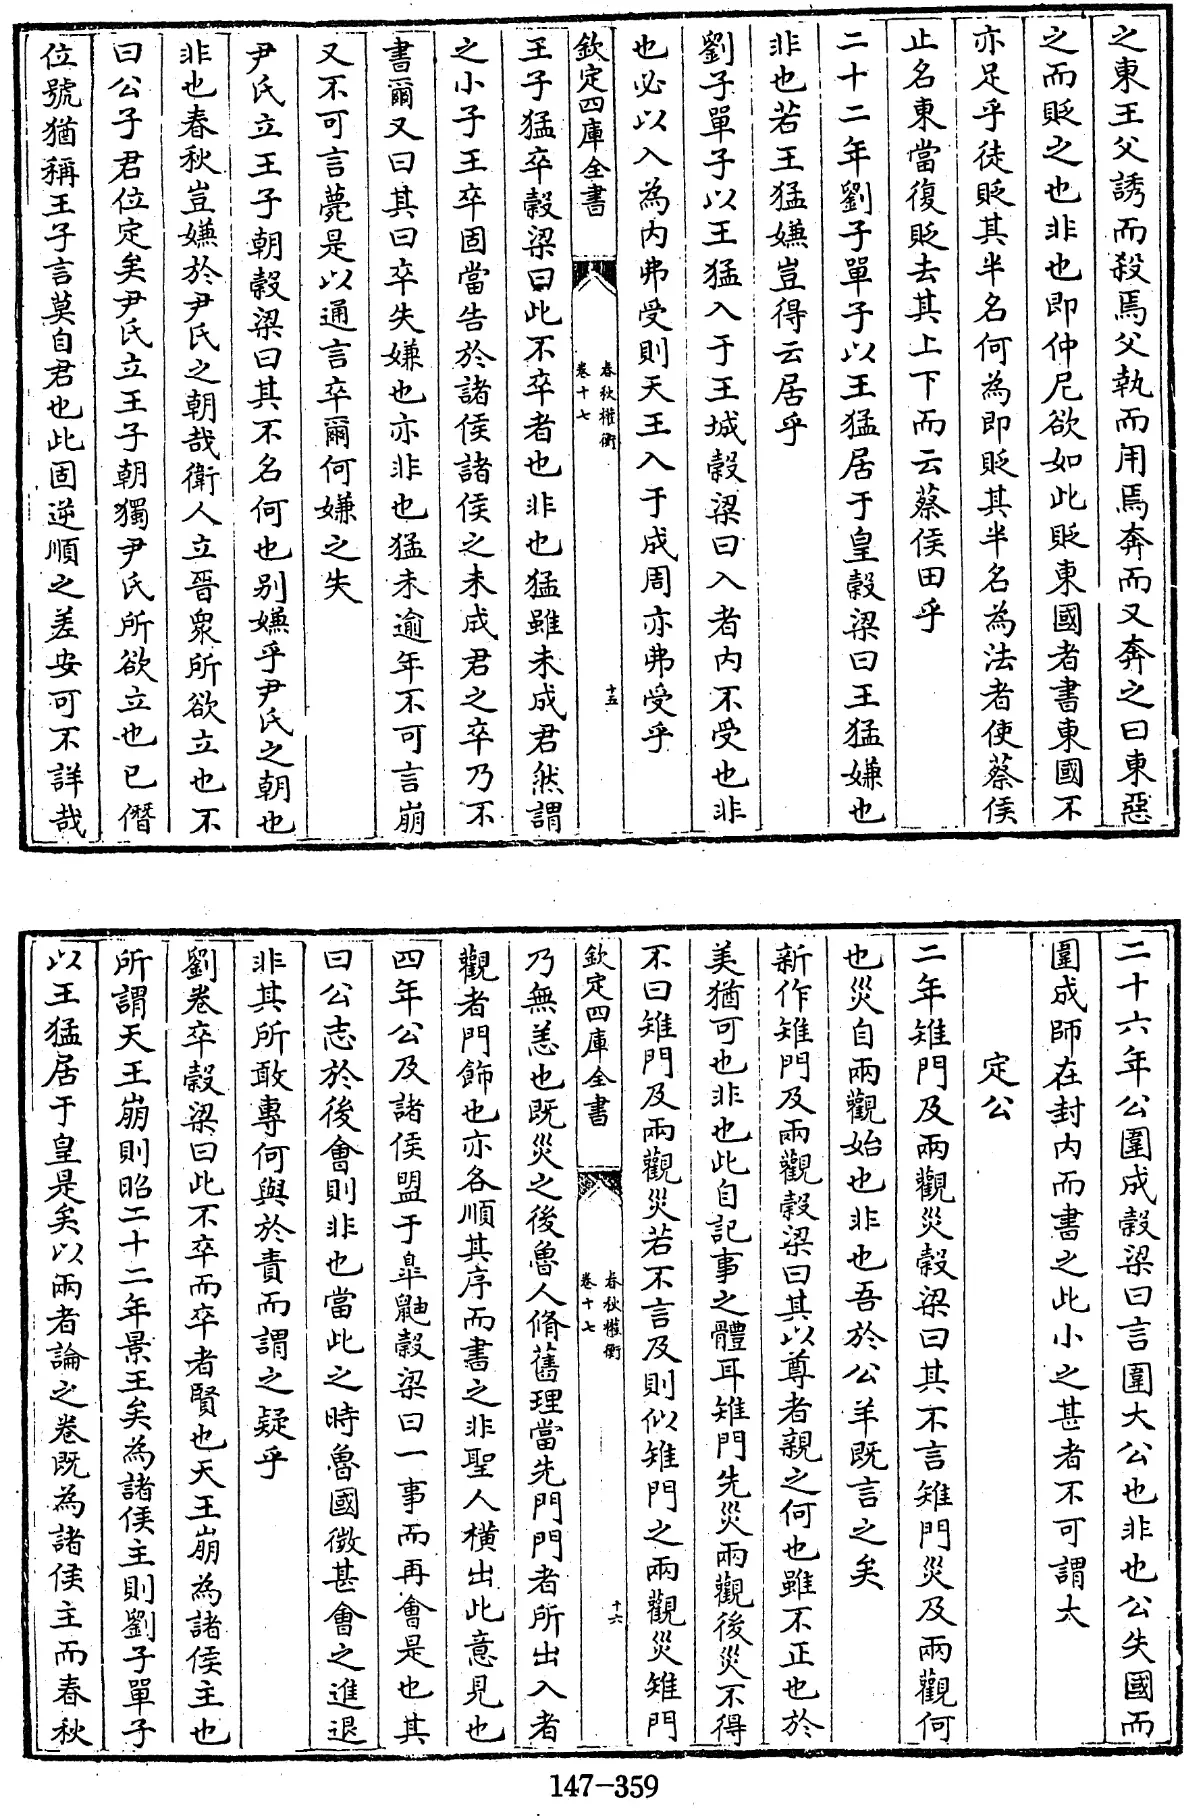 之東王父誘而殺焉父執而用焉奔而又奔之曰東惡
之而貶之也非也即仲尼欲如此貶東國者書東國不
亦足乎徒貶其半名何為即貶其半名為法者使蔡侯
止名東當復貶去其上下而云蔡侯田乎
二十二年劉子單子以王猛居于皇穀梁曰王猛嫌也
非也若王猛嫌豈得云居乎
劉子單子以王猛入于王城穀梁曰入者内不受也非
也必以入為内弗受則天王入于成周亦弗受乎
欽定四庫全書
春秋權衡
卷十七
十五
王子猛卒穀梁曰此不卒者也非也猛雖未成君然謂
之小子王卒固當告於諸侯諸侯之未成君之卒乃不
書爾又曰其曰卒失嫌也亦非也猛未逾年不可言崩
又不可言薨是以通言卒爾何嫌之失
尹氏立王子朝穀梁曰其不名何也别嫌乎尹氏之朝也
非也春秋豈嫌於尹氏之朝哉衛人立晉衆所欲立也不
曰公子君位定矣尹氏立王子朝獨尹氏所欲立也已僭
位號猶稱王子言莫自君也此固逆順之差安可不詳哉
二十六年公圍成穀梁曰言圍大公也非也公失國而
圍成師在封内而書之此小之甚者不可謂大
定公
二年雉門及兩觀災穀梁曰其不言雉門災及兩觀何
也災自兩觀始也非也吾於公羊既言之矣
新作雉門及兩觀穀梁曰其以尊者親之何也雖不正也於
美猶可也非也此自記事之體耳雉門先災兩觀後災不得
不曰雉門及兩觀災若不言及則似雉門之兩觀災雉門
欽定四庫全書
春秋權衡
卷十七
十六
乃無恙也既災之後魯人脩舊理當先門門者所出入者
觀者門飾也亦各順其序而書之非聖人橫出此意見也
四年公及諸侯盟于臯鼬穀梁曰一事而再會是也其
曰公志於後會則非也當此之時魯國微甚會之進退
非其所敢專何與於責而謂之疑乎
劉卷卒穀梁曰此不卒而卒者賢也天王崩為諸侯主也
所謂天王崩則昭二十二年景王矣為諸侯主則劉子單子
以王猛居于皇是矣以兩者論之卷既為諸侯主而春秋
147-359